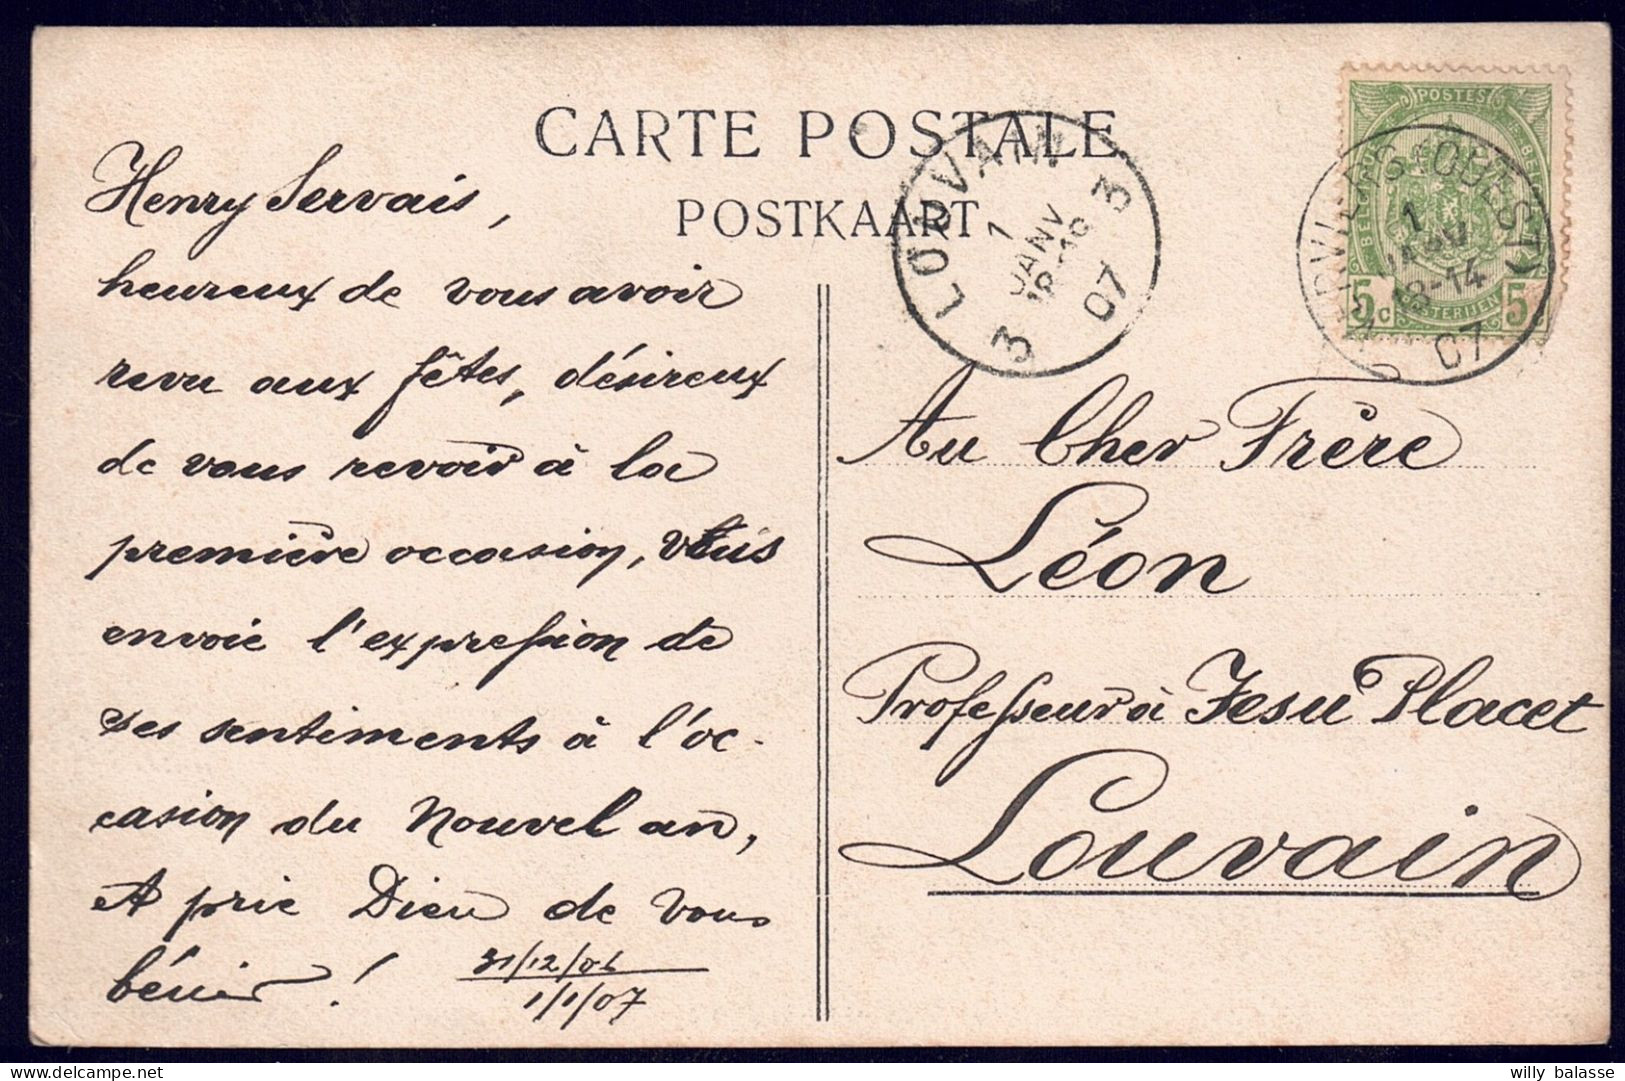 CARTE POSTALE
POSTKAART
Henry Servais,
heureux de vous avoir
revu aux fêtes, désireux
de vous revoir à la
première occasion, vous
envoie l'expression de
ses sentiments à l'oc-
casion du Nouvel an,
et prie Dieu de vous
bénir !
31/12/06
1/1/07
LOUVAIN
1
JANV
07
3 3
POSTES
BELGIQUE BELGIË
5c 5c
POSTERIJEN
VERVIERS-OUEST
1
JANV
13-14
07
Au Cher Frère
Léon
Professeur à Jesu Placet
Louvain
willy balasse